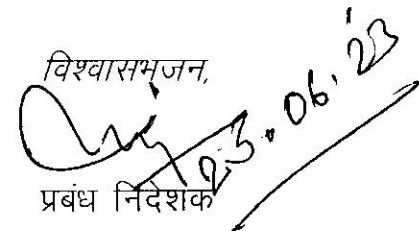 विश्वासभाजन,
23.06.23
प्रबंध निदेशक